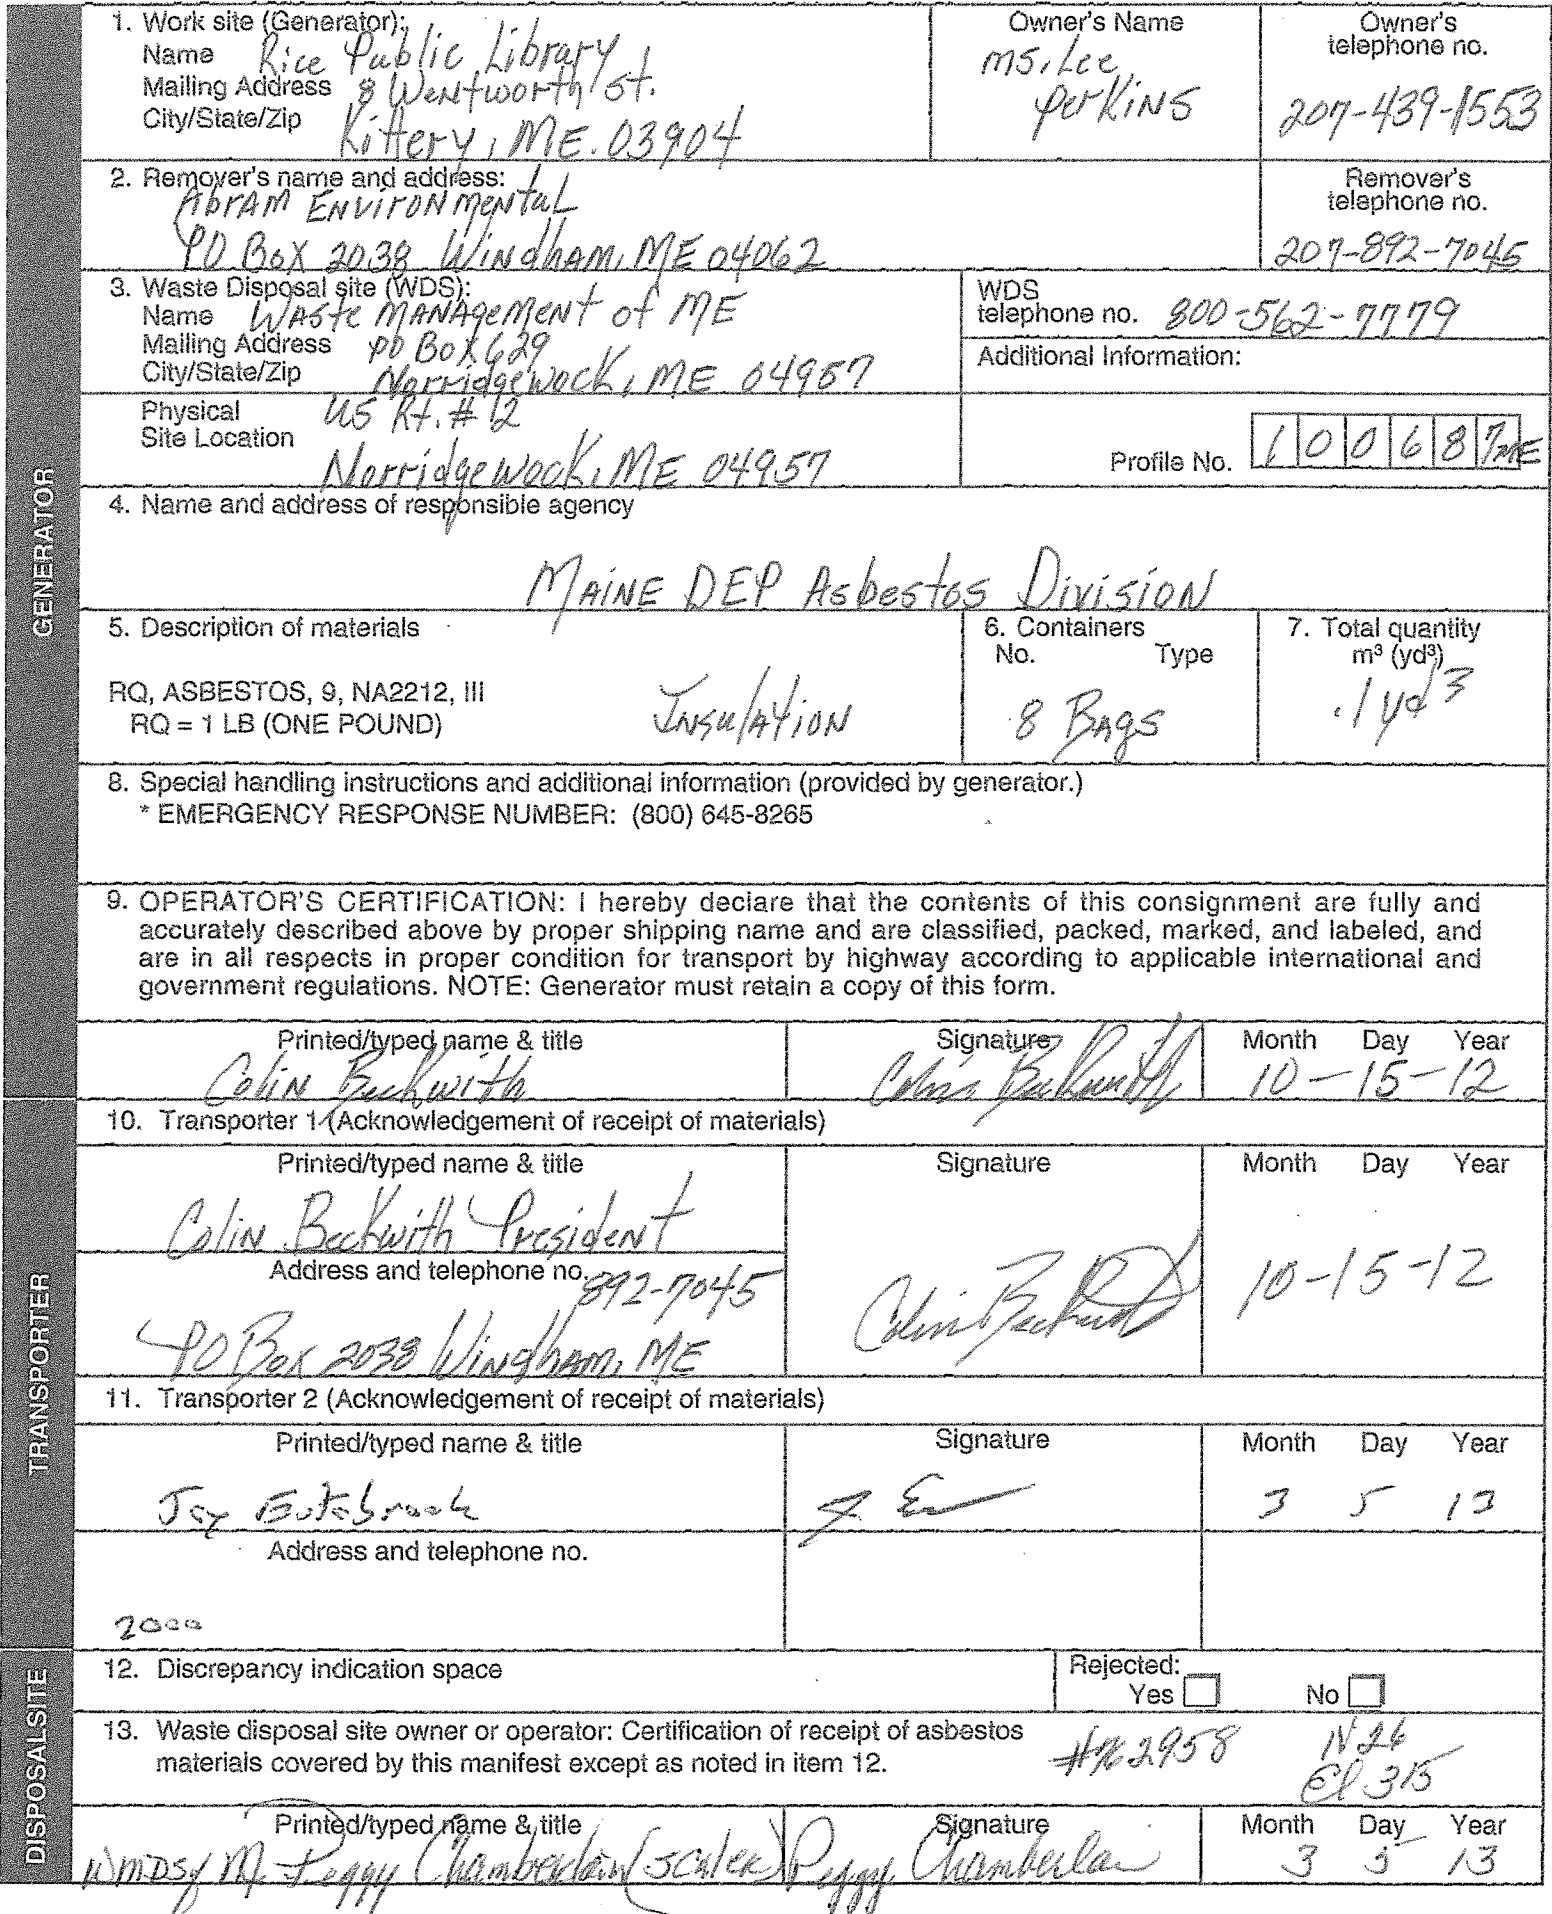 GENERATOR
1. Work site (Generator):
Name Rice Public Library
Mailing Address 8 Wentworth St.
City/State/Zip Kittery, ME. 03904
Owner's Name
Ms. Lee
Perkins
Owner's
telephone no.
207-439-1553
2. Remover's name and address:
Abram Environmental
PO Box 2038 Windham, ME 04062
Remover's
telephone no.
207-892-7045
3. Waste Disposal site (WDS):
Name Waste Management of ME
Mailing Address PO Box 629
City/State/Zip Norridgewock, ME 04957
WDS
telephone no. 800-562-7779
Additional Information:
Physical US Rt. # 12
Site Location
Norridgewock, ME 04957
Profile No. 100687ME
4. Name and address of responsible agency
Maine DEP Asbestos Division
5. Description of materials
RQ, ASBESTOS, 9, NA2212, III
RQ = 1 LB (ONE POUND)
Insulation
6. Containers
No. Type
8 Bags
7. Total quantity
m³ (yd³)
.1 yd3
8. Special handling instructions and additional information (provided by generator.)
* EMERGENCY RESPONSE NUMBER: (800) 645-8265
9. OPERATOR'S CERTIFICATION: I hereby declare that the contents of this consignment are fully and
accurately described above by proper shipping name and are classified, packed, marked, and labeled, and
are in all respects in proper condition for transport by highway according to applicable international and
government regulations. NOTE: Generator must retain a copy of this form.
Printed/typed name & title
Colin Beckwith
Signature
Colin Beckwith
Month Day Year
10-15-12
TRANSPORTER
10. Transporter 1 (Acknowledgement of receipt of materials)
Printed/typed name & title
Colin Beckwith President
Address and telephone no.
892-7045
PO Box 2038 Windham, ME
Signature
Colin Beckwith
Month Day Year
10-15-12
11. Transporter 2 (Acknowledgement of receipt of materials)
Printed/typed name & title
Jay
Signature
Month Day Year
3 5 13
Address and telephone no.
2000
DISPOSAL SITE
12. Discrepancy indication space
Rejected:
Yes No
13. Waste disposal site owner or operator: Certification of receipt of asbestos
materials covered by this manifest except as noted in item 12.
N26
El 315
Printed/typed name & title
Peggy Chamberlain
Signature
Peggy Chamberlain
Month Day Year
3 5 13